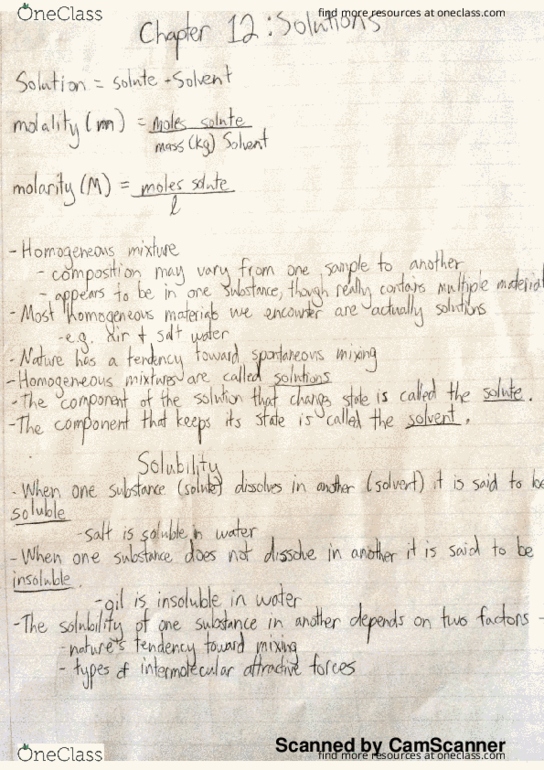 OneClass
find more resources at oneclass.com
Chapter 12: Solutions
Solution = solute + Solvent
molality (m) = moles solute
mass (kg) Solvent
molarity (M) = moles solute
l
- Homogeneous mixture
- composition may vary from one sample to another
- appears to be in one substance, though really contains multiple material
- Most homogeneous materials we encounter are actually solutions
- e.g. Air + salt water
- Nature has a tendency toward spontaneous mixing
- Homogeneous mixtures are called solutions
- The component of the solution that changes state is called the solute.
- The component that keeps its state is called the solvent.
Solubility
- When one substance (solute) dissolves in another (solvent) it is said to be
soluble
- salt is soluble in water
- When one substance does not dissolve in another it is said to be
insoluble.
- oil is insoluble in water
- The solubility of one substance in another depends on two factors -
- nature's tendency toward mixing
- types of intermolecular attractive forces
Scanned by CamScanner
OneClass
find more resources at oneclass.com